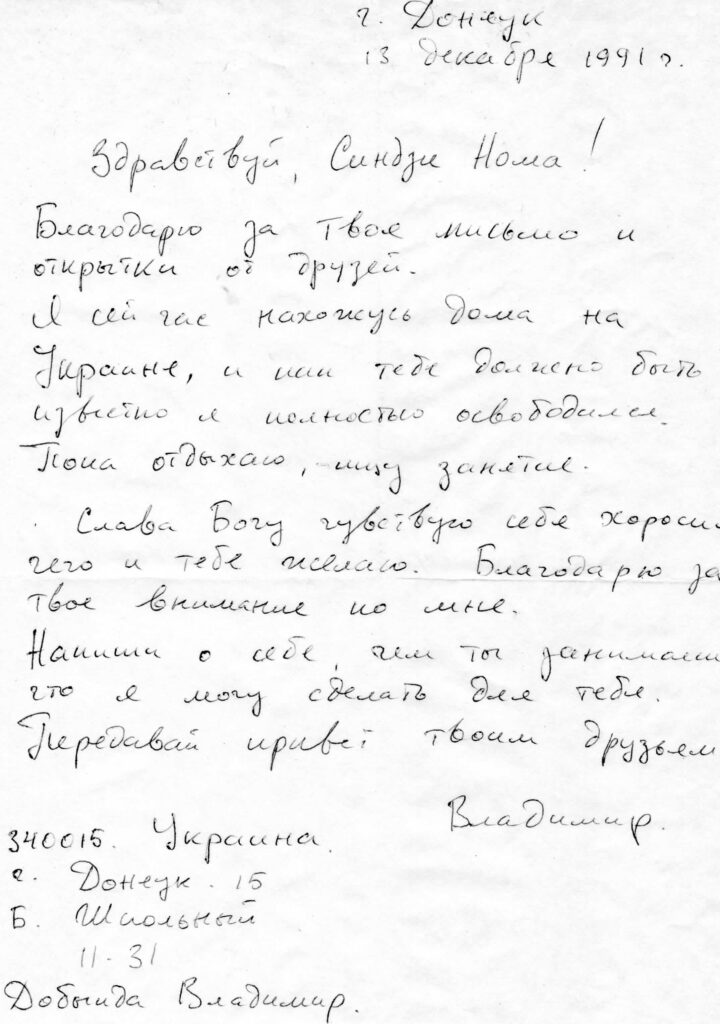 г. Донецк
13 декабря 1991 г.
Здравствуй, Синдзи Нома!
Благодарю за твое письмо и
открытки от друзей.
Я сейчас нахожусь дома на
Украине, и как тебе должно быть
известно я полностью освободился.
Пока отдыхаю, ищу занятие.
Слава Богу чувствую себя хорошо
чего и тебе желаю. Благодарю за
твое внимание ко мне.
Напиши о себе, чем ты занимаеш
что я могу сделать для тебя.
Передавай привет твоим друзьям
Владимир.
340015. Украина.
г. Донецк. 15
Б. Школьный
11-31
Добында Владимир.